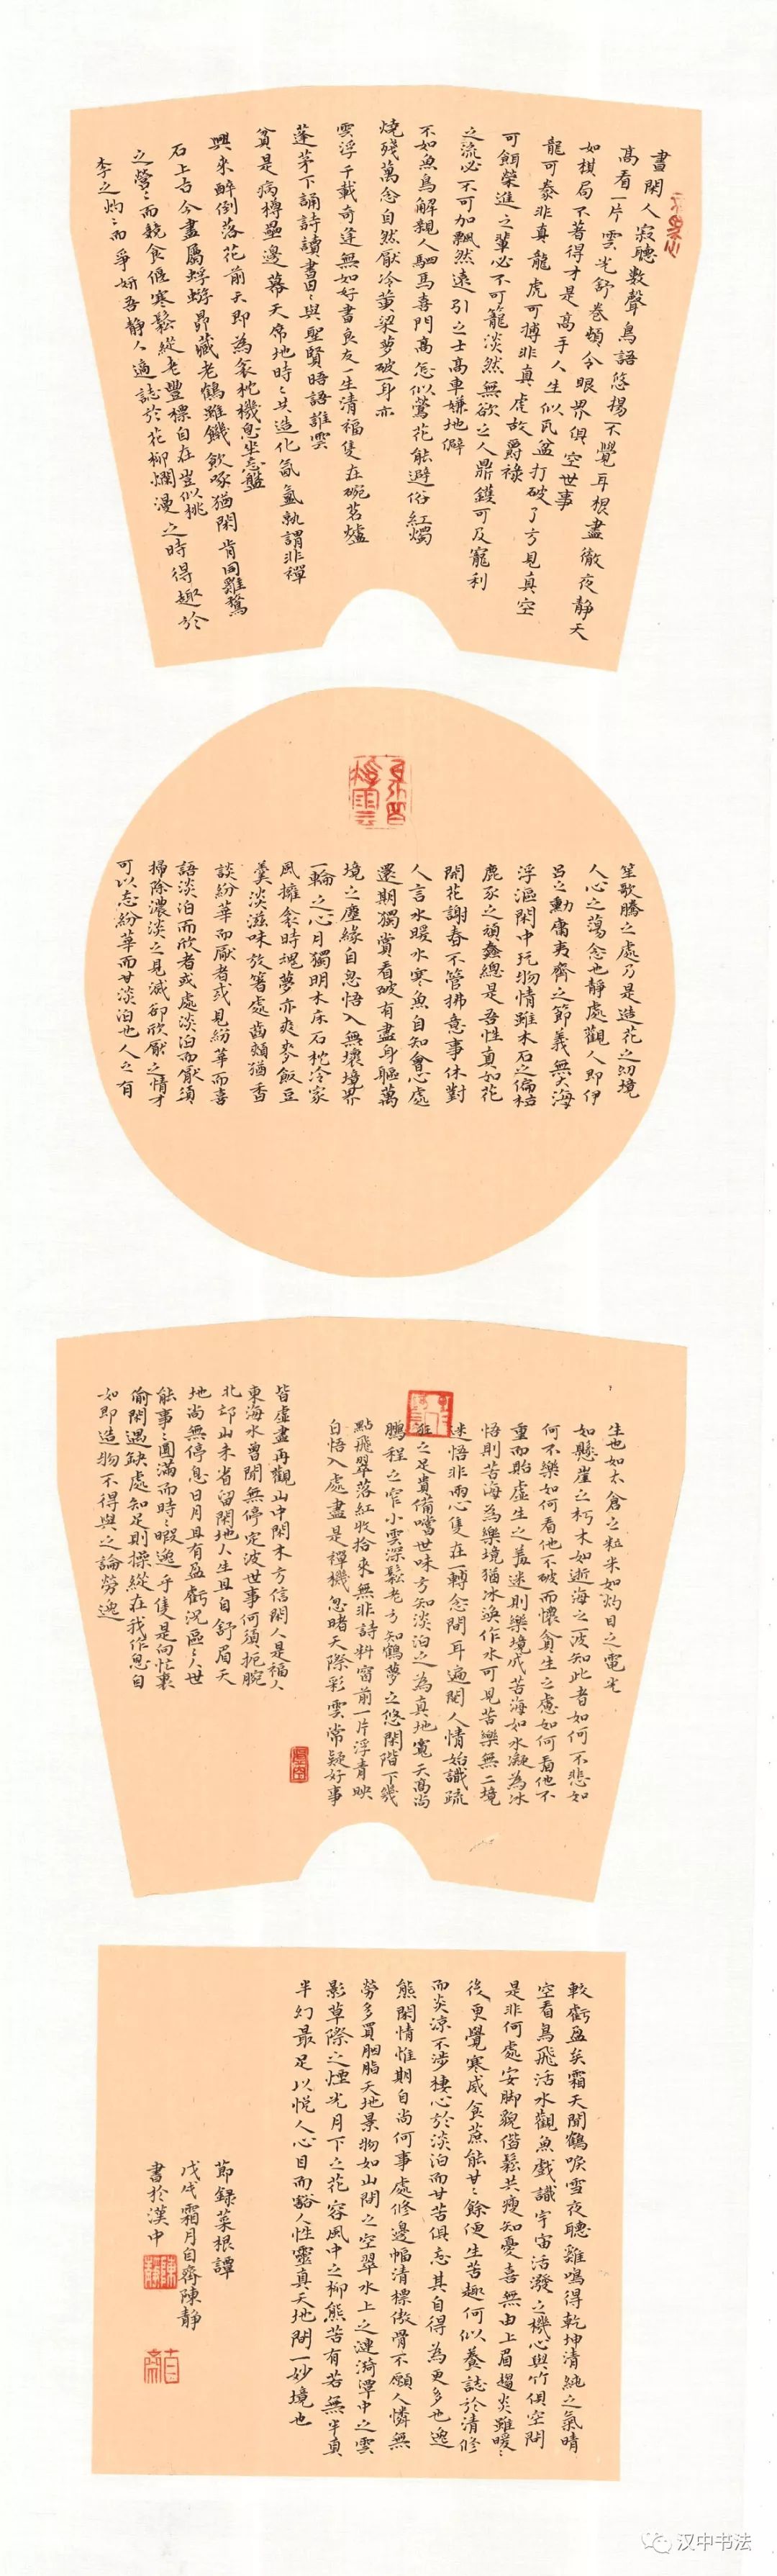 晝閑人寂聽數聲鳥語悠揚不覺耳根盡徹夜靜天
高看一片雲光舒卷頓令眼界俱空世事
如棋局不著得才是高手人生似瓦盆打破了方見真空
龍可豢非真龍虎可搏非真虎故爵祿
可餌榮進之輩必不可籠淡然無欲之人鼎鑊可及寵利
之流必不可加飄然遠引之士高車嫌地僻
不如魚鳥解親人駟馬喜門高怎似鶯花能避俗紅燭
燒殘萬念自然厭冷黃粱夢破一身亦
雲浮千載奇逢無如好書良友一生清福隻在碗茗爐
蓬茅下誦詩讀書日日與聖賢晤語誰雲
貧是病樽罍邊幕天席地時時共造化氤氳孰謂非禪
興來醉倒落花前天即為衾枕機息坐忘盤
石上古今盡屬蜉蝣昂藏老鶴雖饑飲啄猶閑肯同雞鶩
之營營而競食偃蹇鬆縱老豐標自在豈似桃
李之灼灼而爭妍吾靜人適誌於花柳爛漫之時得趣於
笙歌騰之處乃是造花之幻境
人心之蕩念也靜處觀人即伊
呂之勳庸夷齊之節義無大海
浮漚閑中玩物情雖木石之偏枯
鹿豕之頑蠢總是吾性真如花
開花謝春不管拂意事休對
人言水暖水寒魚自知會心處
還期獨賞看破有盡身軀萬
境之塵緣自息悟入無壞境界
一輪之心月獨明木床石枕冷家
風擁衾時魂夢亦爽麥飯豆
羹淡滋味放箸處齒頰猶香
談紛華而厭者或見紛華而喜
語淡泊而欣者或處淡泊而厭須
掃除濃淡之見滅卻欣厭之情才
可以忘紛華而甘淡泊也人之有
生也如太倉之粒米如灼目之電光
如懸崖之朽木如逝海之一波知此者如何不悲如
何不樂如何看他不破而懷貪生之慮如何看他不
重而貽虛生之羞迷則樂境成苦海如水凝為冰
悟則苦海為樂境猶冰渙作水可見苦樂無二境
迷悟非兩心隻在一轉念間耳遍閱人情始識疏
狂之足貴備嚐世味方知淡泊之為真地寬天高尚
鵬程之窄小雲深鬆老方知鶴夢之悠閑階下幾
點飛翠落紅收拾來無非詩料窗前一片浮青映
白悟入處盡是禪機忽睹天際彩雲常疑好事
皆虛盡再觀山中閑木方信閑人是福人
東海水曾聞無停定波世事何須扼腕
北邙山未省留閑地人生且自舒眉天
地尚無停息日月且有盈虧況區區人世
能事事圓滿而時時暇逸乎隻是向忙裏
偷閑遇缺處知足則操縱在我作息自
如即造物不得與之論勞逸
較虧盈矣霜天聞鶴唳雪夜聽雞鳴得乾坤清純之氣晴
空看鳥飛活水觀魚戲識宇宙活潑之機心與竹俱空問
是非何處安脚貌偕鬆共瘦知憂喜無由上眉趨炎雖暖暖
後更覺寒威食蔗能甘甘餘便生苦趣何似養誌於清修
而炎涼不涉棲心於淡泊而甘苦俱忘其自得為更多也逸
態閑情惟期自尚何事處修邊幅清標傲骨不願人憐無
勞多買胭脂天地景物如山間之空翠水上之漣漪潭中之雲
影草際之煙光月下之花容風中之柳態若有若無半真
半幻最足以悅人心目而豁人性靈真天地間一妙境也
節錄菜根譚
戊戌霜月自齋陳靜
書於漢中
汉中书法